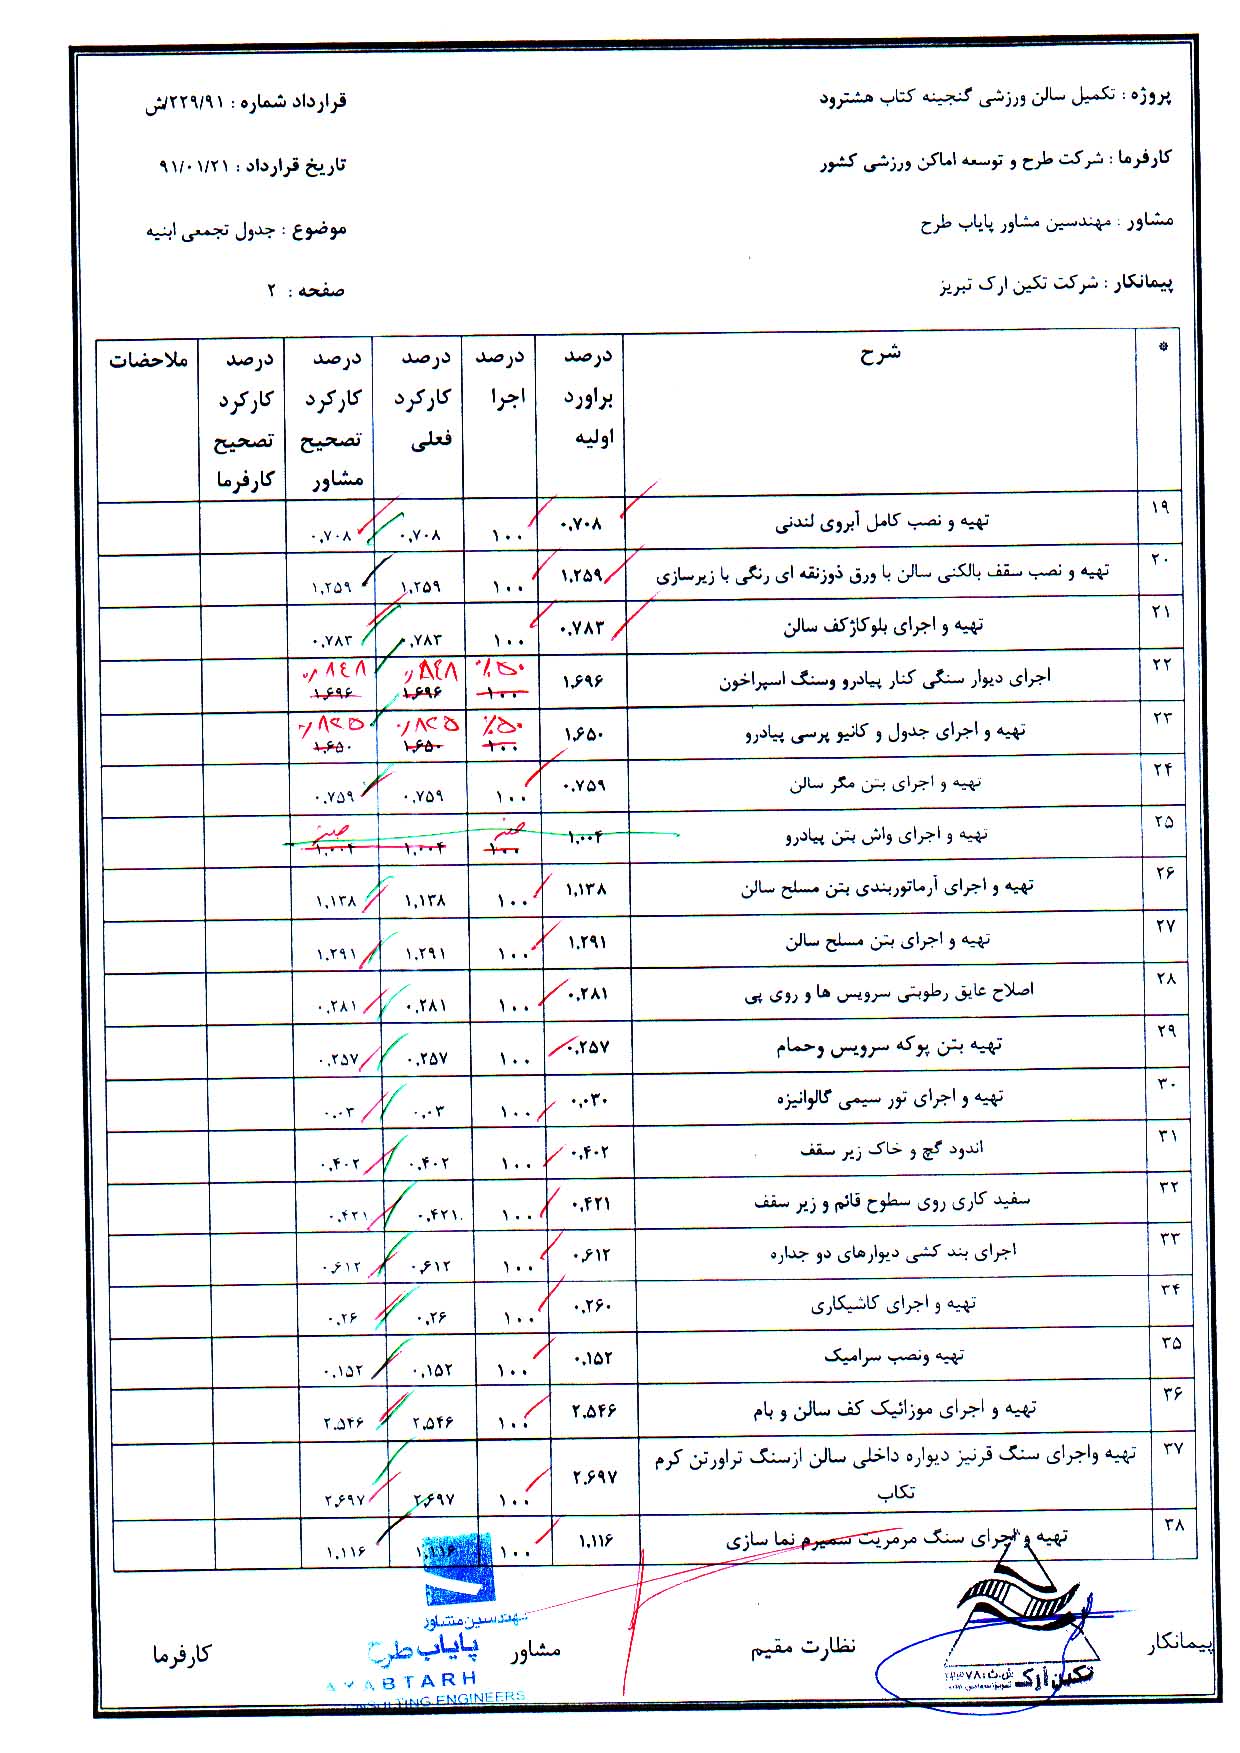 پروژه : تکمیل سالن ورزشی گنجینه کتاب هشترود
قرارداد شماره : ۲۲۹/۹۱/ش
کارفرما : شرکت طرح و توسعه اماکن ورزشی کشور
تاریخ قرارداد : ۹۱/۰۱/۲۱
مشاور : مهندسین مشاور پایاب طرح
موضوع : جدول تجمعی ابنیه
پیمانکار : شرکت تکین ارک تبریز
صفحه : ۲
* شرح درصد براورد اولیه درصد اجرا درصد کارکرد فعلی درصد کارکرد تصحیح مشاور درصد کارکرد تصحیح کارفرما ملاحضات
۱۹ تهیه و نصب کامل آبروی لندنی ۰.۷۰۸ ۱۰۰ ۰.۷۰۸ ۰.۷۰۸
۲۰ تهیه و نصب سقف بالکنی سالن با ورق ذوزنقه ای رنگی با زیرسازی ۱.۲۵۹ ۱۰۰ ۱.۲۵۹ ۱.۲۵۹
۲۱ تهیه و اجرای بلوکاژکف سالن ۰.۷۸۳ ۱۰۰ ۰.۷۸۳ ۰.۷۸۳
٪۵۰ ۰/۸۴۸ ۰/۸۴۸
۲۲ اجرای دیوار سنگی کنار پیادرو وسنگ اسپراخون ۱.۶۹۶ ۱۰۰ ۱.۶۹۶ ۱.۶۹۶
٪۵۰ ۰/۸۲۵ ۰/۸۲۵
۲۳ تهیه و اجرای جدول و کانیو پرسی پیادرو ۱.۶۵۰ ۱۰۰ ۱.۶۵۰ ۱.۶۵۰
۲۴ تهیه و اجرای بتن مگر سالن ۰.۷۵۹ ۱۰۰ ۰.۷۵۹ ۰.۷۵۹
۲۵ تهیه و اجرای واش بتن پیادرو ۱.۰۰۴ ۱۰۰ ۱.۰۰۴ ۱.۰۰۴
۲۶ تهیه و اجرای آرماتوربندی بتن مسلح سالن ۱.۱۳۸ ۱۰۰ ۱.۱۳۸ ۱.۱۳۸
۲۷ تهیه و اجرای بتن مسلح سالن ۱.۲۹۱ ۱۰۰ ۱.۲۹۱ ۱.۲۹۱
۲۸ اصلاح عایق رطوبتی سرویس ها و روی پی ۰.۲۸۱ ۱۰۰ ۰.۲۸۱ ۰.۲۸۱
۲۹ تهیه بتن پوکه سرویس وحمام ۰.۲۵۷ ۱۰۰ ۰.۲۵۷ ۰.۲۵۷
۳۰ تهیه و اجرای تور سیمی گالوانیزه ۰.۰۳۰ ۱۰۰ ۰.۰۳ ۰.۰۳
۳۱ اندود گچ و خاک زیر سقف ۰.۴۰۲ ۱۰۰ ۰.۴۰۲ ۰.۴۰۲
۳۲ سفید کاری روی سطوح قائم و زیر سقف ۰.۴۲۱ ۱۰۰ ۰.۴۲۱ ۰.۴۲۱
۳۳ اجرای بند کشی دیوارهای دو جداره ۰.۶۱۲ ۱۰۰ ۰.۶۱۲ ۰.۶۱۲
۳۴ تهیه و اجرای کاشیکاری ۰.۲۶۰ ۱۰۰ ۰.۲۶ ۰.۲۶
۳۵ تهیه ونصب سرامیک ۰.۱۵۲ ۱۰۰ ۰.۱۵۲ ۰.۱۵۲
۳۶ تهیه و اجرای موزائیک کف سالن و بام ۲.۵۴۶ ۱۰۰ ۲.۵۴۶ ۲.۵۴۶
۳۷ تهیه واجرای سنگ قرنیز دیواره داخلی سالن ازسنگ تراورتن کرم
تکاب ۲.۶۹۷ ۱۰۰ ۲.۶۹۷ ۲.۶۹۷
۳۸ تهیه و اجرای سنگ مرمریت سمیرم نما سازی ۱.۱۱۶ ۱۰۰ ۱.۱۱۶ ۱.۱۱۶
پیمانکار نظارت مقیم مشاور کارفرما
تکین ارک
مهندسین مشاور
پایاب طرح
AYABTARH
CONSULTING ENGINEERS